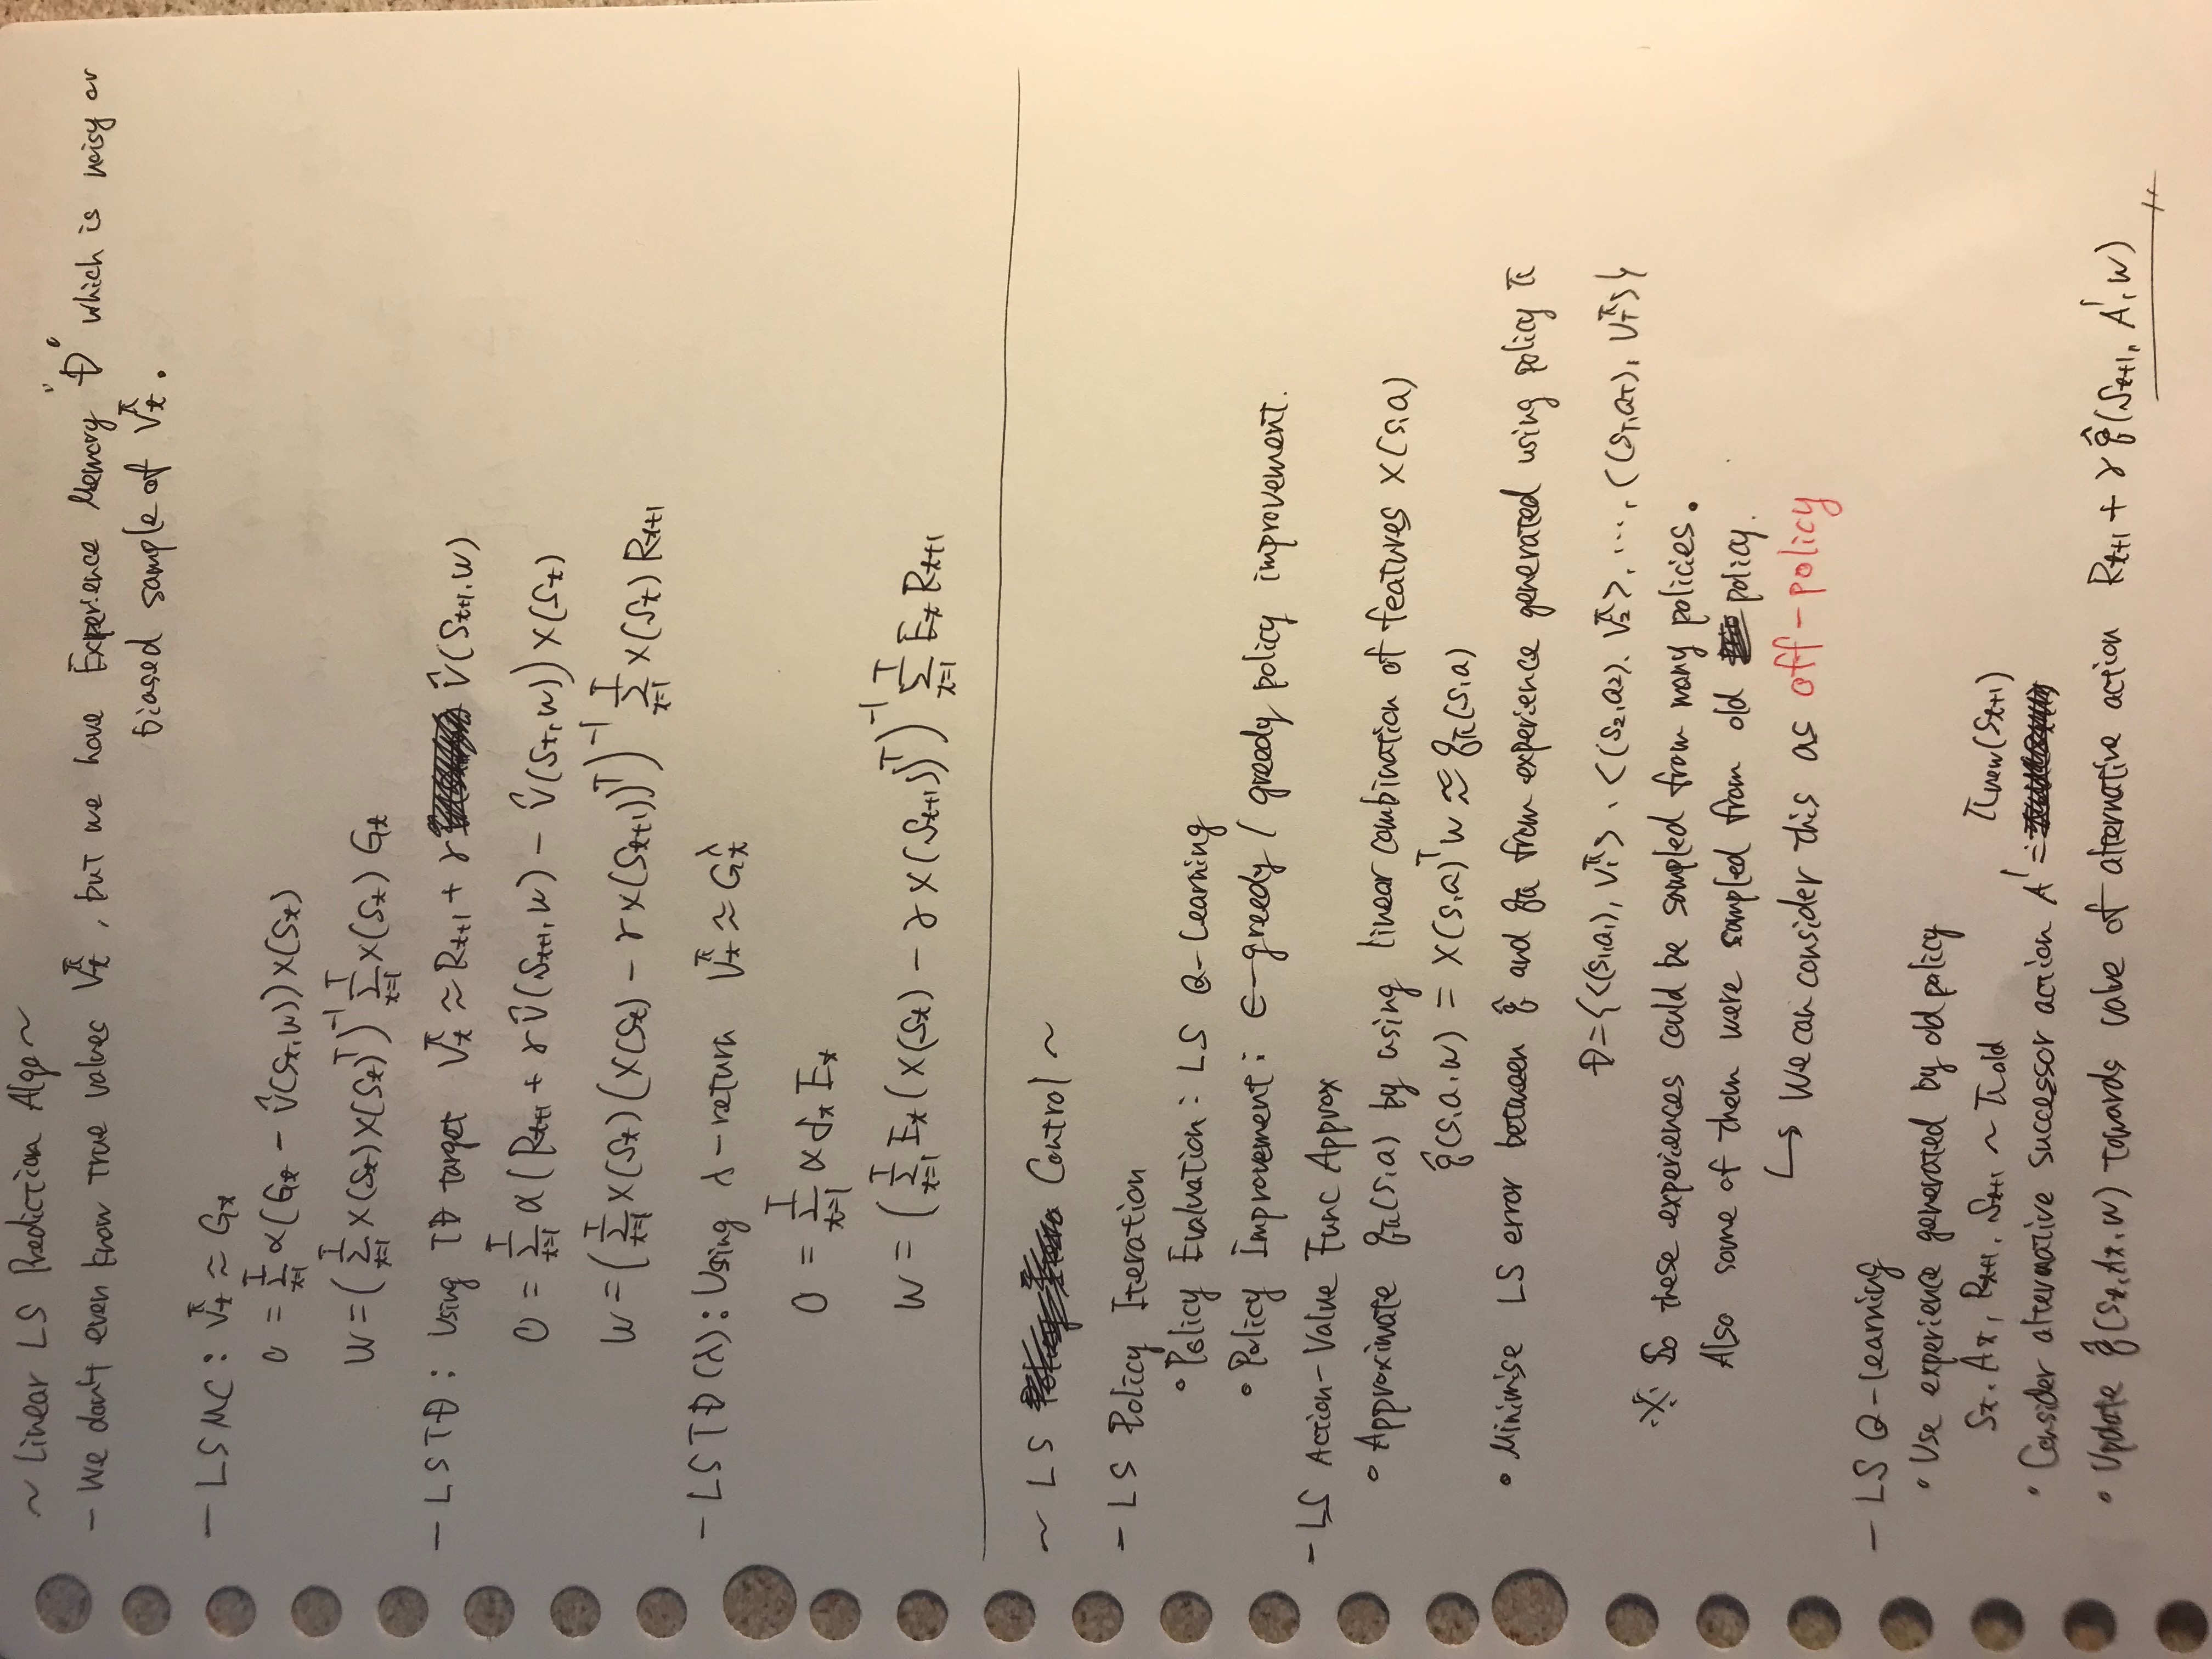 ~ Linear LS Prediction Algo ~
- We don't even know true values V_t^π, but we have Experience Memory "D" which is noisy or
biased sample of V_t^π.
- LSMC: V_t^π ≈ G_t
0 = Σ_{t=1}^T α(G_t - v̂(S_t, w)) x(S_t)
w = (Σ_{t=1}^T x(S_t) x(S_t)^T)^{-1} Σ_{t=1}^T x(S_t) G_t
- LSTD: Using TD target V_t^π ≈ R_{t+1} + γ v̂(S_{t+1}, w)
0 = Σ_{t=1}^T α(R_{t+1} + γ v̂(S_{t+1}, w) - v̂(S_t, w)) x(S_t)
w = (Σ_{t=1}^T x(S_t)(x(S_t) - γ x(S_{t+1}))^T)^{-1} Σ_{t=1}^T x(S_t) R_{t+1}
- LSTD(λ): Using λ-return V_t^π ≈ G_t^λ
0 = Σ_{t=1}^T α δ_t E_t
w = (Σ_{t=1}^T E_t (x(S_t) - γ x(S_{t+1}))^T)^{-1} Σ_{t=1}^T E_t R_{t+1}
~ LS Control ~
- LS Policy Iteration
• Policy Evaluation: LS Q-Learning
• Policy Improvement: ε-greedy / greedy policy improvement.
- LS Action-Value Func Approx
• Approximate q_π(s,a) by using linear combination of features x(s,a)
q̂(s,a,w) = x(s,a)^T w ≈ q_π(s,a)
• Minimise LS error between q̂ and q_π from experience generated using policy π
D = {<(s_1,a_1), V_1^π>, <(s_2,a_2), V_2^π>, ..., <(s_T,a_T), V_T^π>}
※ So these experiences could be sampled from many policies.
Also some of them were sampled from old policy.
↳ We can consider this as off-policy
- LS Q-learning
• Use experience generated by old policy
S_t, A_t, R_{t+1}, S_{t+1} ~ π_old
• Consider alternative successor action A' = π_new(S_{t+1})
• Update q̂(S_t, A_t, w) towards value of alternative action R_{t+1} + γ q̂(S_{t+1}, A', w)